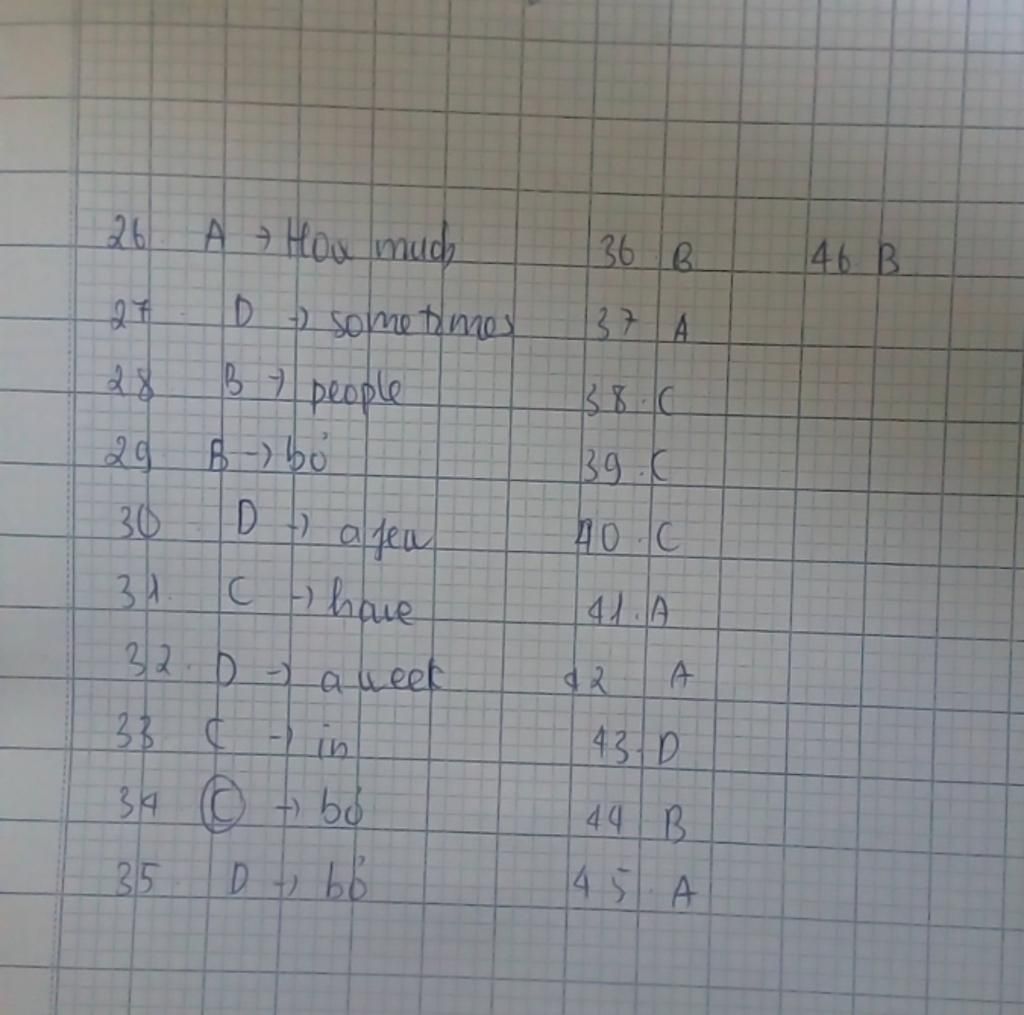 26 A → How much 36 B 46 B
27 D → sometimes 37 A
28 B → people 38. C
29 B → bỏ 39. C
30 D → a few 40. C
31. C → have 41. A
32. D → a week 42 A
33 C → in 43 D
34 C → bỏ 44 B
35 D → bỏ 45. A